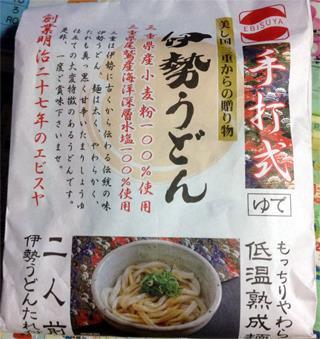 EBISUYA
手打式
ゆで
美し国三重からの贈り物
伊勢うどん
三重県産小麦粉一〇〇％使用
三重県尾鷲産海洋深層水塩一〇〇％使用
三重は伊勢に古くから伝わる伝統の味
伊勢うどん。麺は太く、やわらかく、
たれも真っ黒く甘辛いたまりしょうゆ
味の大変特徴のあるうどんです。
是非、一度ご賞味下さいませ。
創業明治二十七年のエビスヤ
もっちりやわら
低温熟成麺
二人前
伊勢うどんたれ